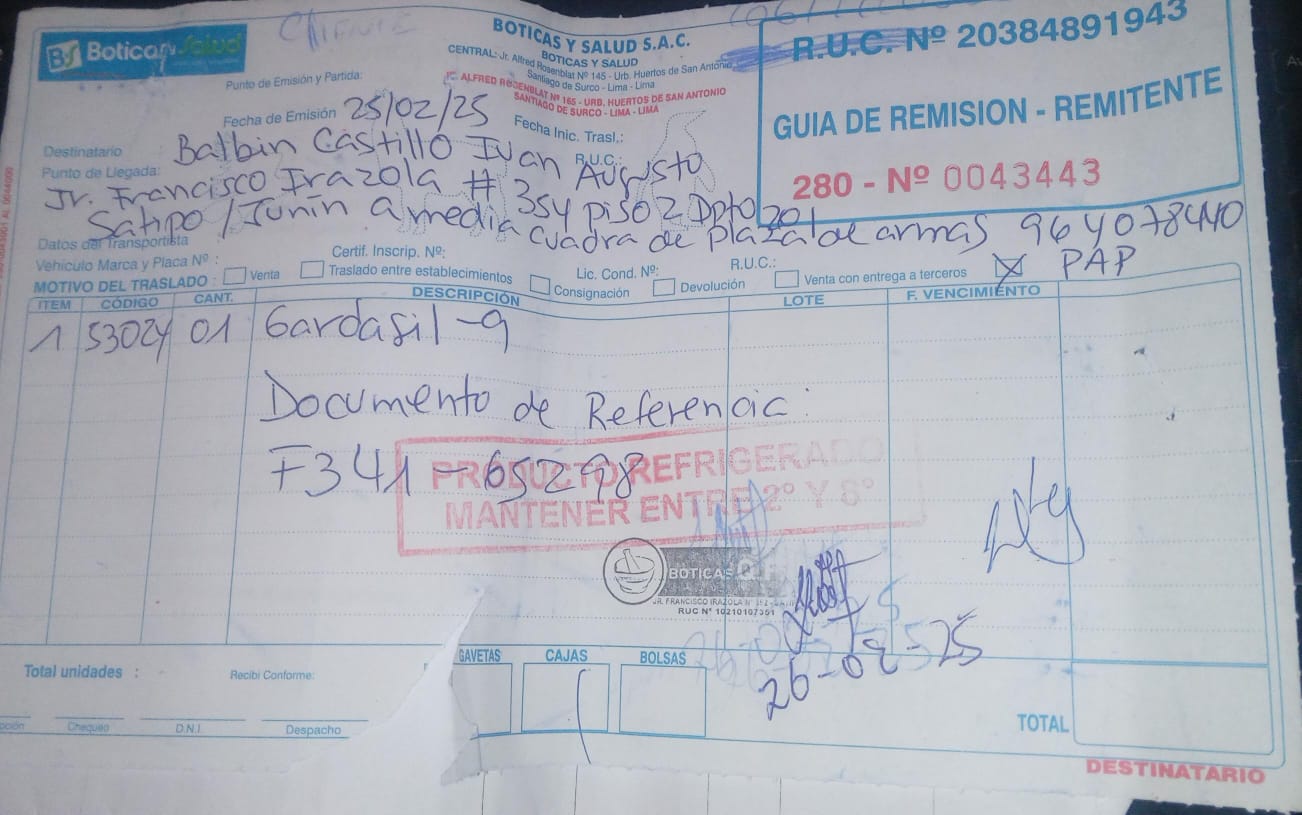 CLIENTE
Boticas y Salud
BOTICAS Y SALUD S.A.C.
BOTICAS Y SALUD
CENTRAL: Jr. Alfred Rosenblat Nº 145 - Urb. Huertos de San Antonio
Santiago de Surco - Lima - Lima
ALFRED ROSENBLAT Nº 165 - URB. HUERTOS DE SAN ANTONIO
SANTIAGO DE SURCO - LIMA - LIMA
R.U.C. Nº 20384891943
GUIA DE REMISION - REMITENTE
280 - Nº 0043443
Punto de Emisión y Partida:
Fecha de Emisión 25/02/25
Fecha Inic. Trasl.:
Destinatario Balbin Castillo Ivan Augusto
R.U.C.:
Punto de Llegada: Jr. Francisco Irazola # 354 piso 2 Dpto 201
Satipo / Junín a media cuadra de plaza de armas 964078440
Datos del Transportista
Vehículo Marca y Placa Nº :
Certif. Inscrip. Nº:
Lic. Cond. Nº:
R.U.C.:
MOTIVO DEL TRASLADO : Venta Traslado entre establecimientos Consignación Devolución Venta con entrega a terceros PAP
ITEM CÓDIGO CANT. DESCRIPCIÓN LOTE F. VENCIMIENTO
1 53024 01 Gardasil-9
Documento de Referencia:
F341-65298
PRODUCTO REFRIGERADO
MANTENER ENTRE 2º Y 8º
BOTICAS
JR. FRANCISCO IRAZOLA Nº
RUC Nº 10210107351
26-02-25
GAVETAS CAJAS BOLSAS
Total unidades :
Recibí Conforme:
Chequeo D.N.I. Despacho
TOTAL
DESTINATARIO